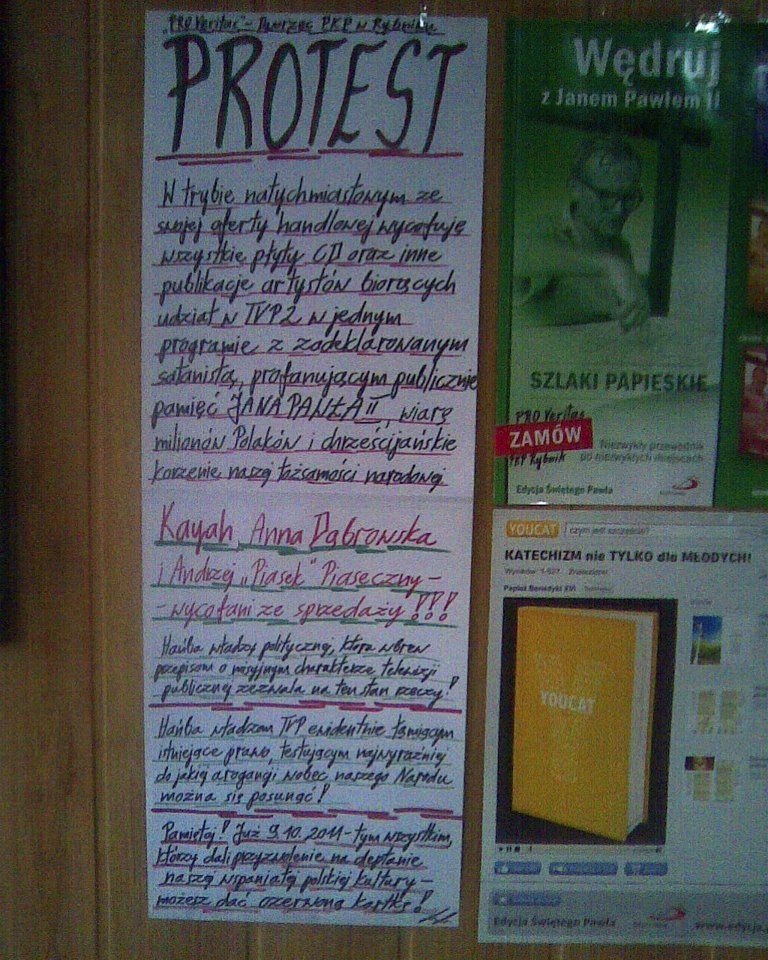 "PRO Veritas" - Dworzec PKP w Rybniku
PROTEST
W trybie natychmiastowym ze
swojej oferty handlowej wycofuję
wszystkie płyty CD oraz inne
publikacje artystów biorących
udział w TVP2 w jednym
programie z zadeklarowanym
satanistą, profanującym publicznie
pamięć JANA PAWŁA II, wiarę
milionów Polaków i chrześcijańskie
korzenie naszej tożsamości narodowej
Kayah, Anna Dąbrowska
i Andrzej „Piasek" Piaseczny -
- wycofani ze sprzedaży!!!
Hańba władzy politycznej, która wbrew
przepisom o misyjnym charakterze telewizji
publicznej zezwala na ten stan rzeczy!
Hańba władzom TVP ewidentnie łamiącym
istniejące prawo, testującym najwyraźniej
do jakiej arogancji wobec naszego Narodu
można się posunąć!
Pamiętaj! Już 9.10.2011 - tym wszystkim,
którzy dali przyzwolenie na deptanie
naszej wspaniałej polskiej kultury -
możesz dać czerwoną kartkę!
Wędruj
z Janem Pawłem II
SZLAKI PAPIESKIE
PRO Veritas
ZAMÓW
PKP Rybnik
Niezwykły przewodnik
po niezwykłych miejscach
Edycja Świętego Pawła
YOUCAT
czym jest szczęście?
KATECHIZM nie TYLKO dla MŁODYCH!
Papież Benedykt XVI
YOUCAT
Edycja Świętego Pawła
www.edycja.p